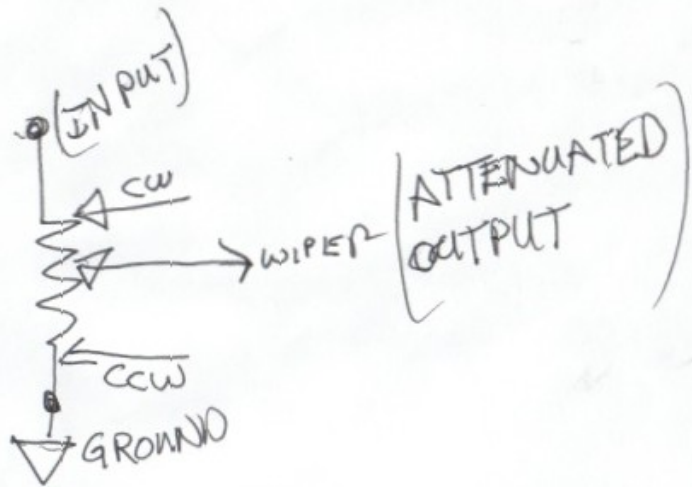 (INPUT)
CW
WIPER
(ATTENUATED
OUTPUT)
CCW
GROUND